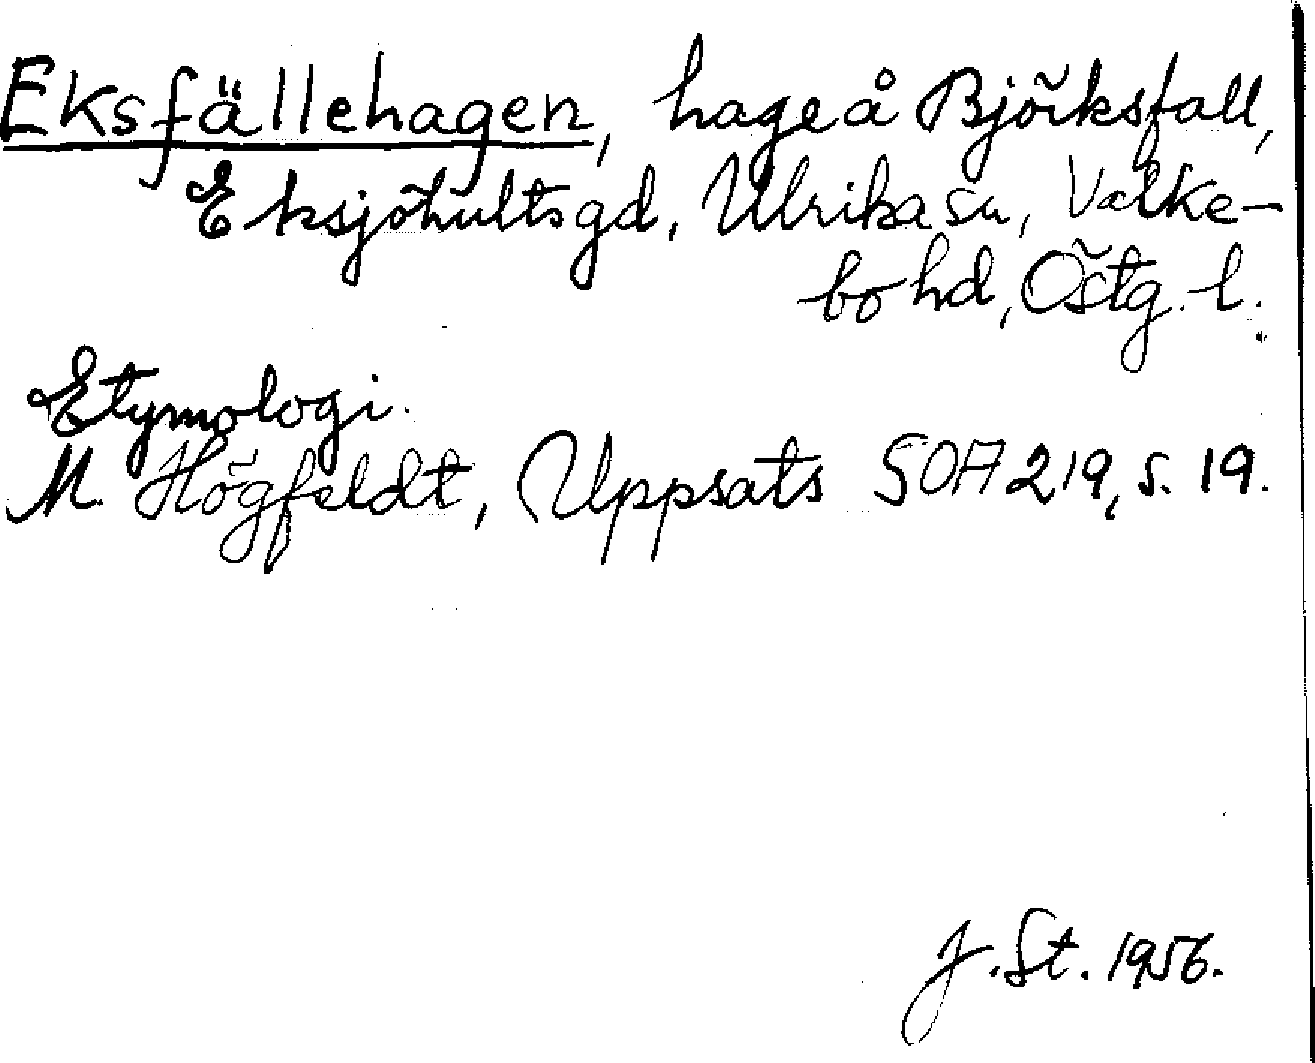 Eksfällehagen, hage å Björksfall,
Eksjöhultsgd, Ulrika sn, Valke-
bo hd, Östg. l.
Etymologi.
M. Högfeldt, Uppsats SOA 219, s. 19.
J. St. 1956.